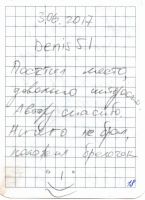 3.06.2017
Denis51
Посетил место,
довольно интересно
Автору спасибо.
Ничего не брал
положил брелочек
"!"
18